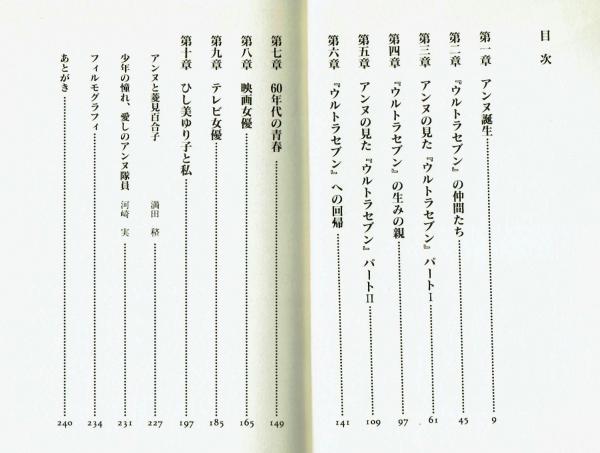 目次
第一章 アンヌ誕生 9
第二章 『ウルトラセブン』の仲間たち 45
第三章 アンヌの見た『ウルトラセブン』パートI 61
第四章 『ウルトラセブン』の生みの親 97
第五章 アンヌの見た『ウルトラセブン』パートII 109
第六章 『ウルトラセブン』への回帰 141
第七章 60年代の青春 149
第八章 映画女優 165
第九章 テレビ女優 185
第十章 ひし美ゆり子と私 197
アンヌと菱見百合子 満田 䅈 227
少年の憧れ、愛しのアンヌ隊員 河崎 実 231
フィルモグラフィ 234
あとがき 240